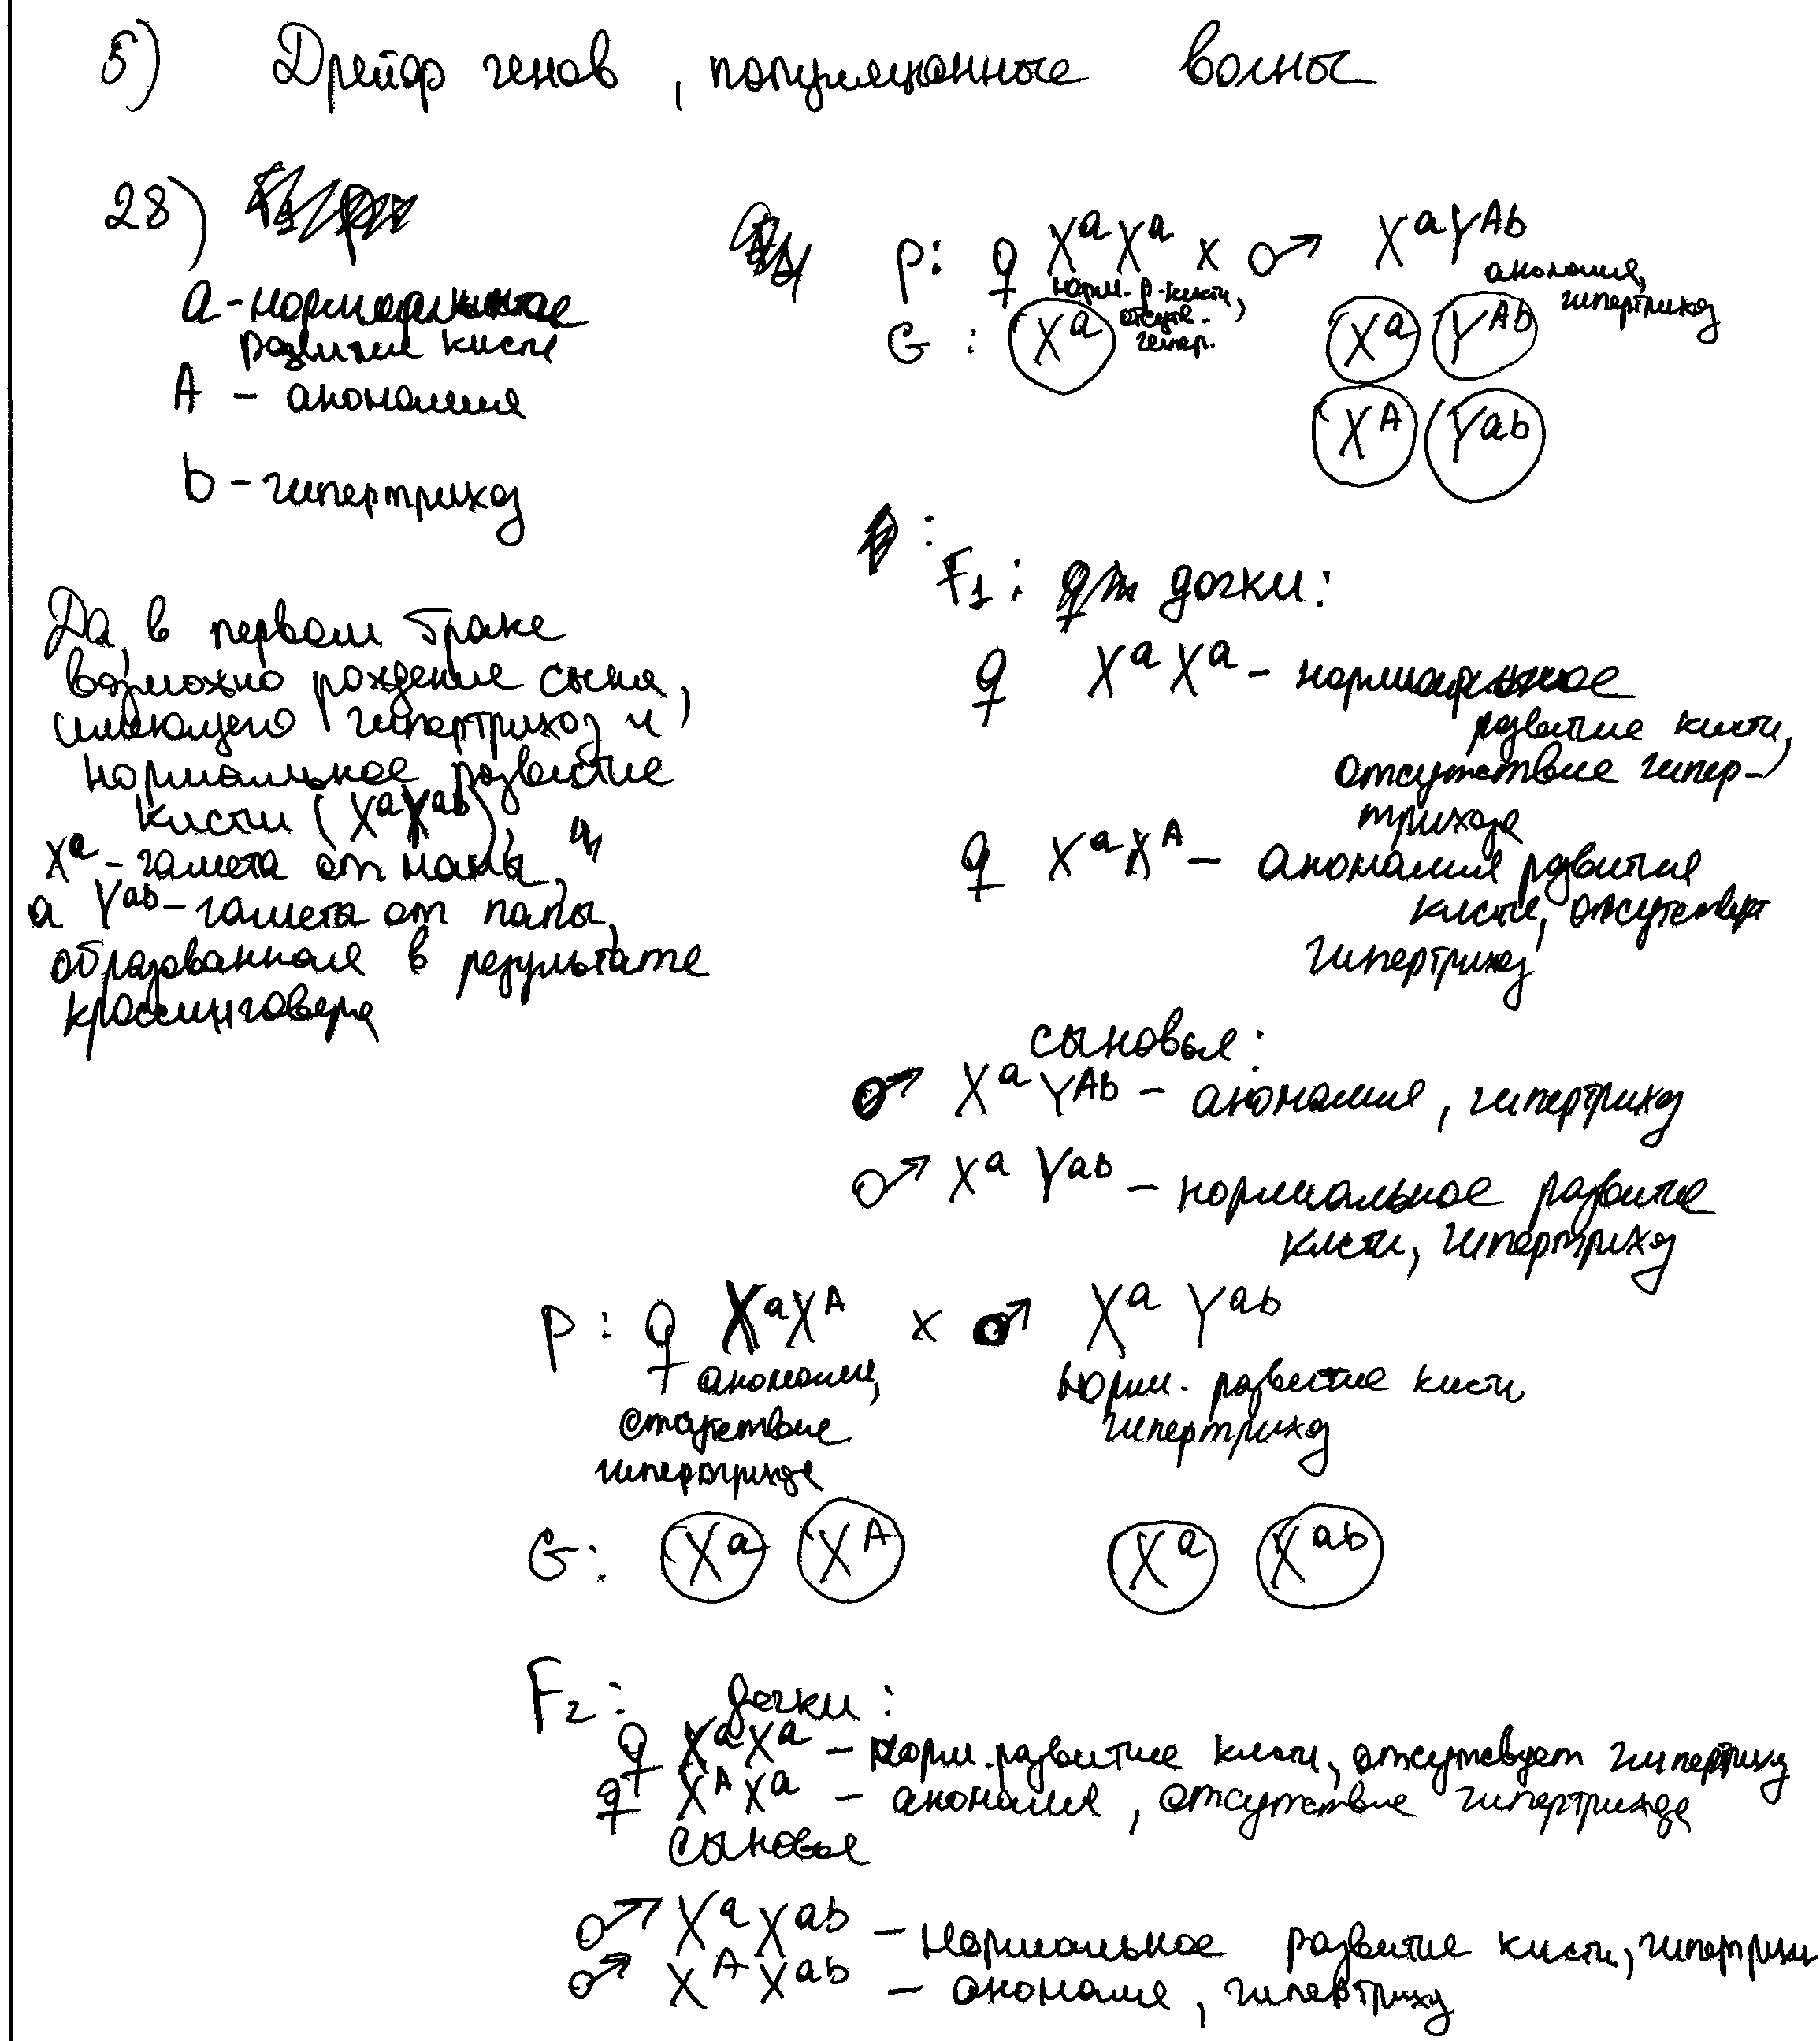 5) Дрейф генов, популяционные волны
28)
a - нормальное
развитие кисти
A - аномалия
b - гипертрихоз
Да, в первом браке
возможно рождение сына,
имеющего гипертрихоз и
нормальное развитие
кисти (XᵃYᵃᵇ),
Xᵃ - гамета от мамы,
а Yᵃᵇ - гамета от папы,
образованная в результате
кроссинговера
P: ♀ XᵃXᵃ x ♂ XᵃYᴬᵇ
норм. р. кисти,
отсутв.
гипер.
аномалия,
гипертрихоз
G: Xᵃ Xᵃ Yᴬᵇ
Xᴬ Yᵃᵇ
F₁: дочки:
♀ XᵃXᵃ - нормальное
развитие кисти,
отсутствие гипер-
трихоза
♀ XᵃXᴬ - аномалия развития
кисти, отсутствует
гипертрихоз
сыновья:
♂ XᵃYᴬᵇ - аномалия, гипертрихоз
♂ XᵃYᵃᵇ - нормальное развитие
кисти, гипертрихоз
P: ♀ XᵃXᴬ x ♂ XᵃYᵃᵇ
аномалия,
отсутствие
гипертрихоза
норм. развитие кисти
гипертрихоз
G: Xᵃ Xᴬ Xᵃ Xᵃᵇ
F₂: дочки:
♀ XᵃXᵃ - норм. развитие кисти, отсутсвует гипертрихоз
♀ XᴬXᵃ - аномалия, отсутствие гипертрихоза
сыновья
♂ XᵃXᵃᵇ - нормальное развитие кисти, гипертрихоз
♂ XᴬXᵃᵇ - аномалия, гипертрихоз